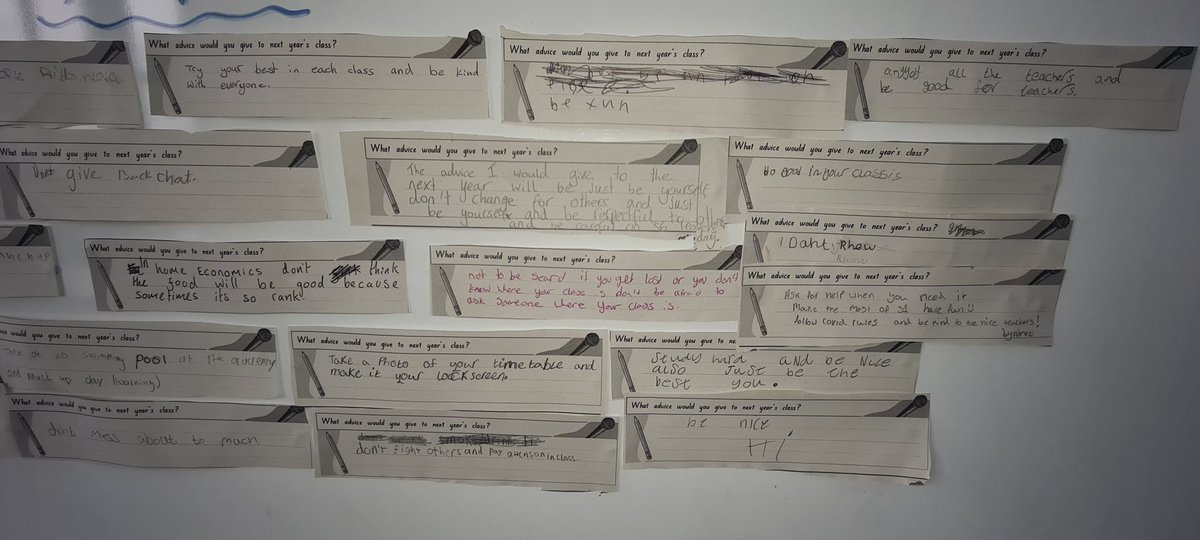 What advice would you give to next year's class?
Try your best in each class and be kind
with everyone.
What advice would you give to next year's class?
be xun
What advice would you give to next year's class?
all the teachers and
be good for teachers.
What advice would you give to next year's class?
Dont give Back chat.
What advice would you give to next year's class?
The advice I would give to the
next year will be Just be yourself
don't change for others and just
be yourself and be respectful to
What advice would you give to next year's class?
in your classis
What advice would you give to next year's class?
I Daht Rhow
What advice would you give to next year's class?
In home Economics don't think
the food will be good because
sometimes its so rank
What advice would you give to next
not to be scard if you get lost or you don't
know where your class is don't be afraid to
ask someone where your class is.
What advice would you give to next year's class?
Ask for help when you need it
Make the most of S1 have fun
follow covid rules and be kind to the nice teachers!
advice would you give to next year's class?
swimming POOL at the academy
What advice would you give to next year's class?
Take a Photo of your timetable and
make it your lockscreen.
What advice would you give to next
Study hard and be Nice
also Just be the
best you.
What advice would you give to next year's class?
dont mess about to much
What advice would you give to next year's class?
don't fight others and pay attenson in class.
What advice would you give to next year's class?
be nice
Hi